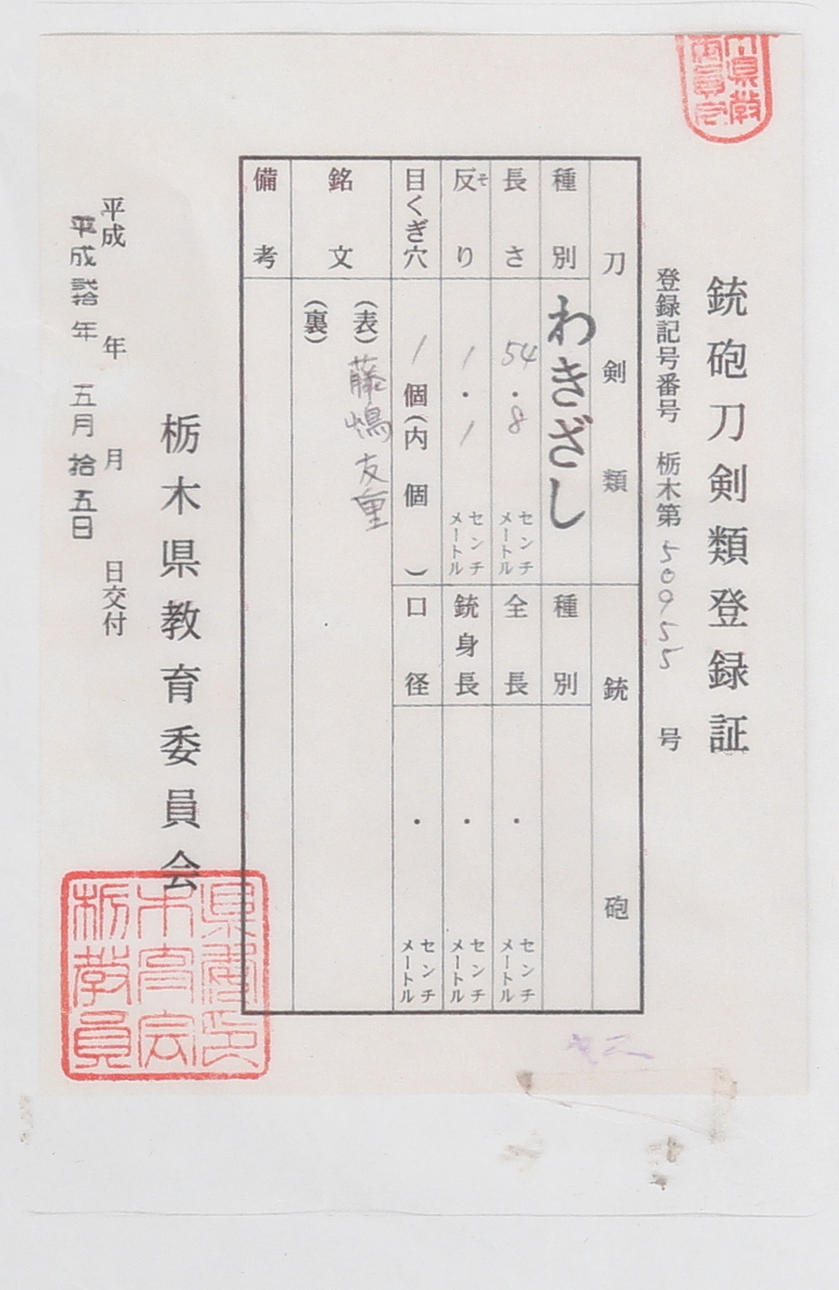 銃砲刀剣類登録証
登録記号番号 栃木第50955号
刀剣類
種別 わきざし
長さ 54.8 センチメートル
反り 1.1 センチメートル
そ
目くぎ穴 1個(内 個)
銘文 (表) 藤嶋友重
(裏)
備考
銃砲
種別
全長 ・ センチメートル
銃身長 ・ センチメートル
口径 ・ センチメートル
平成 年 月 日交付
平成弐拾年 五月拾五日
栃木県教育委員会